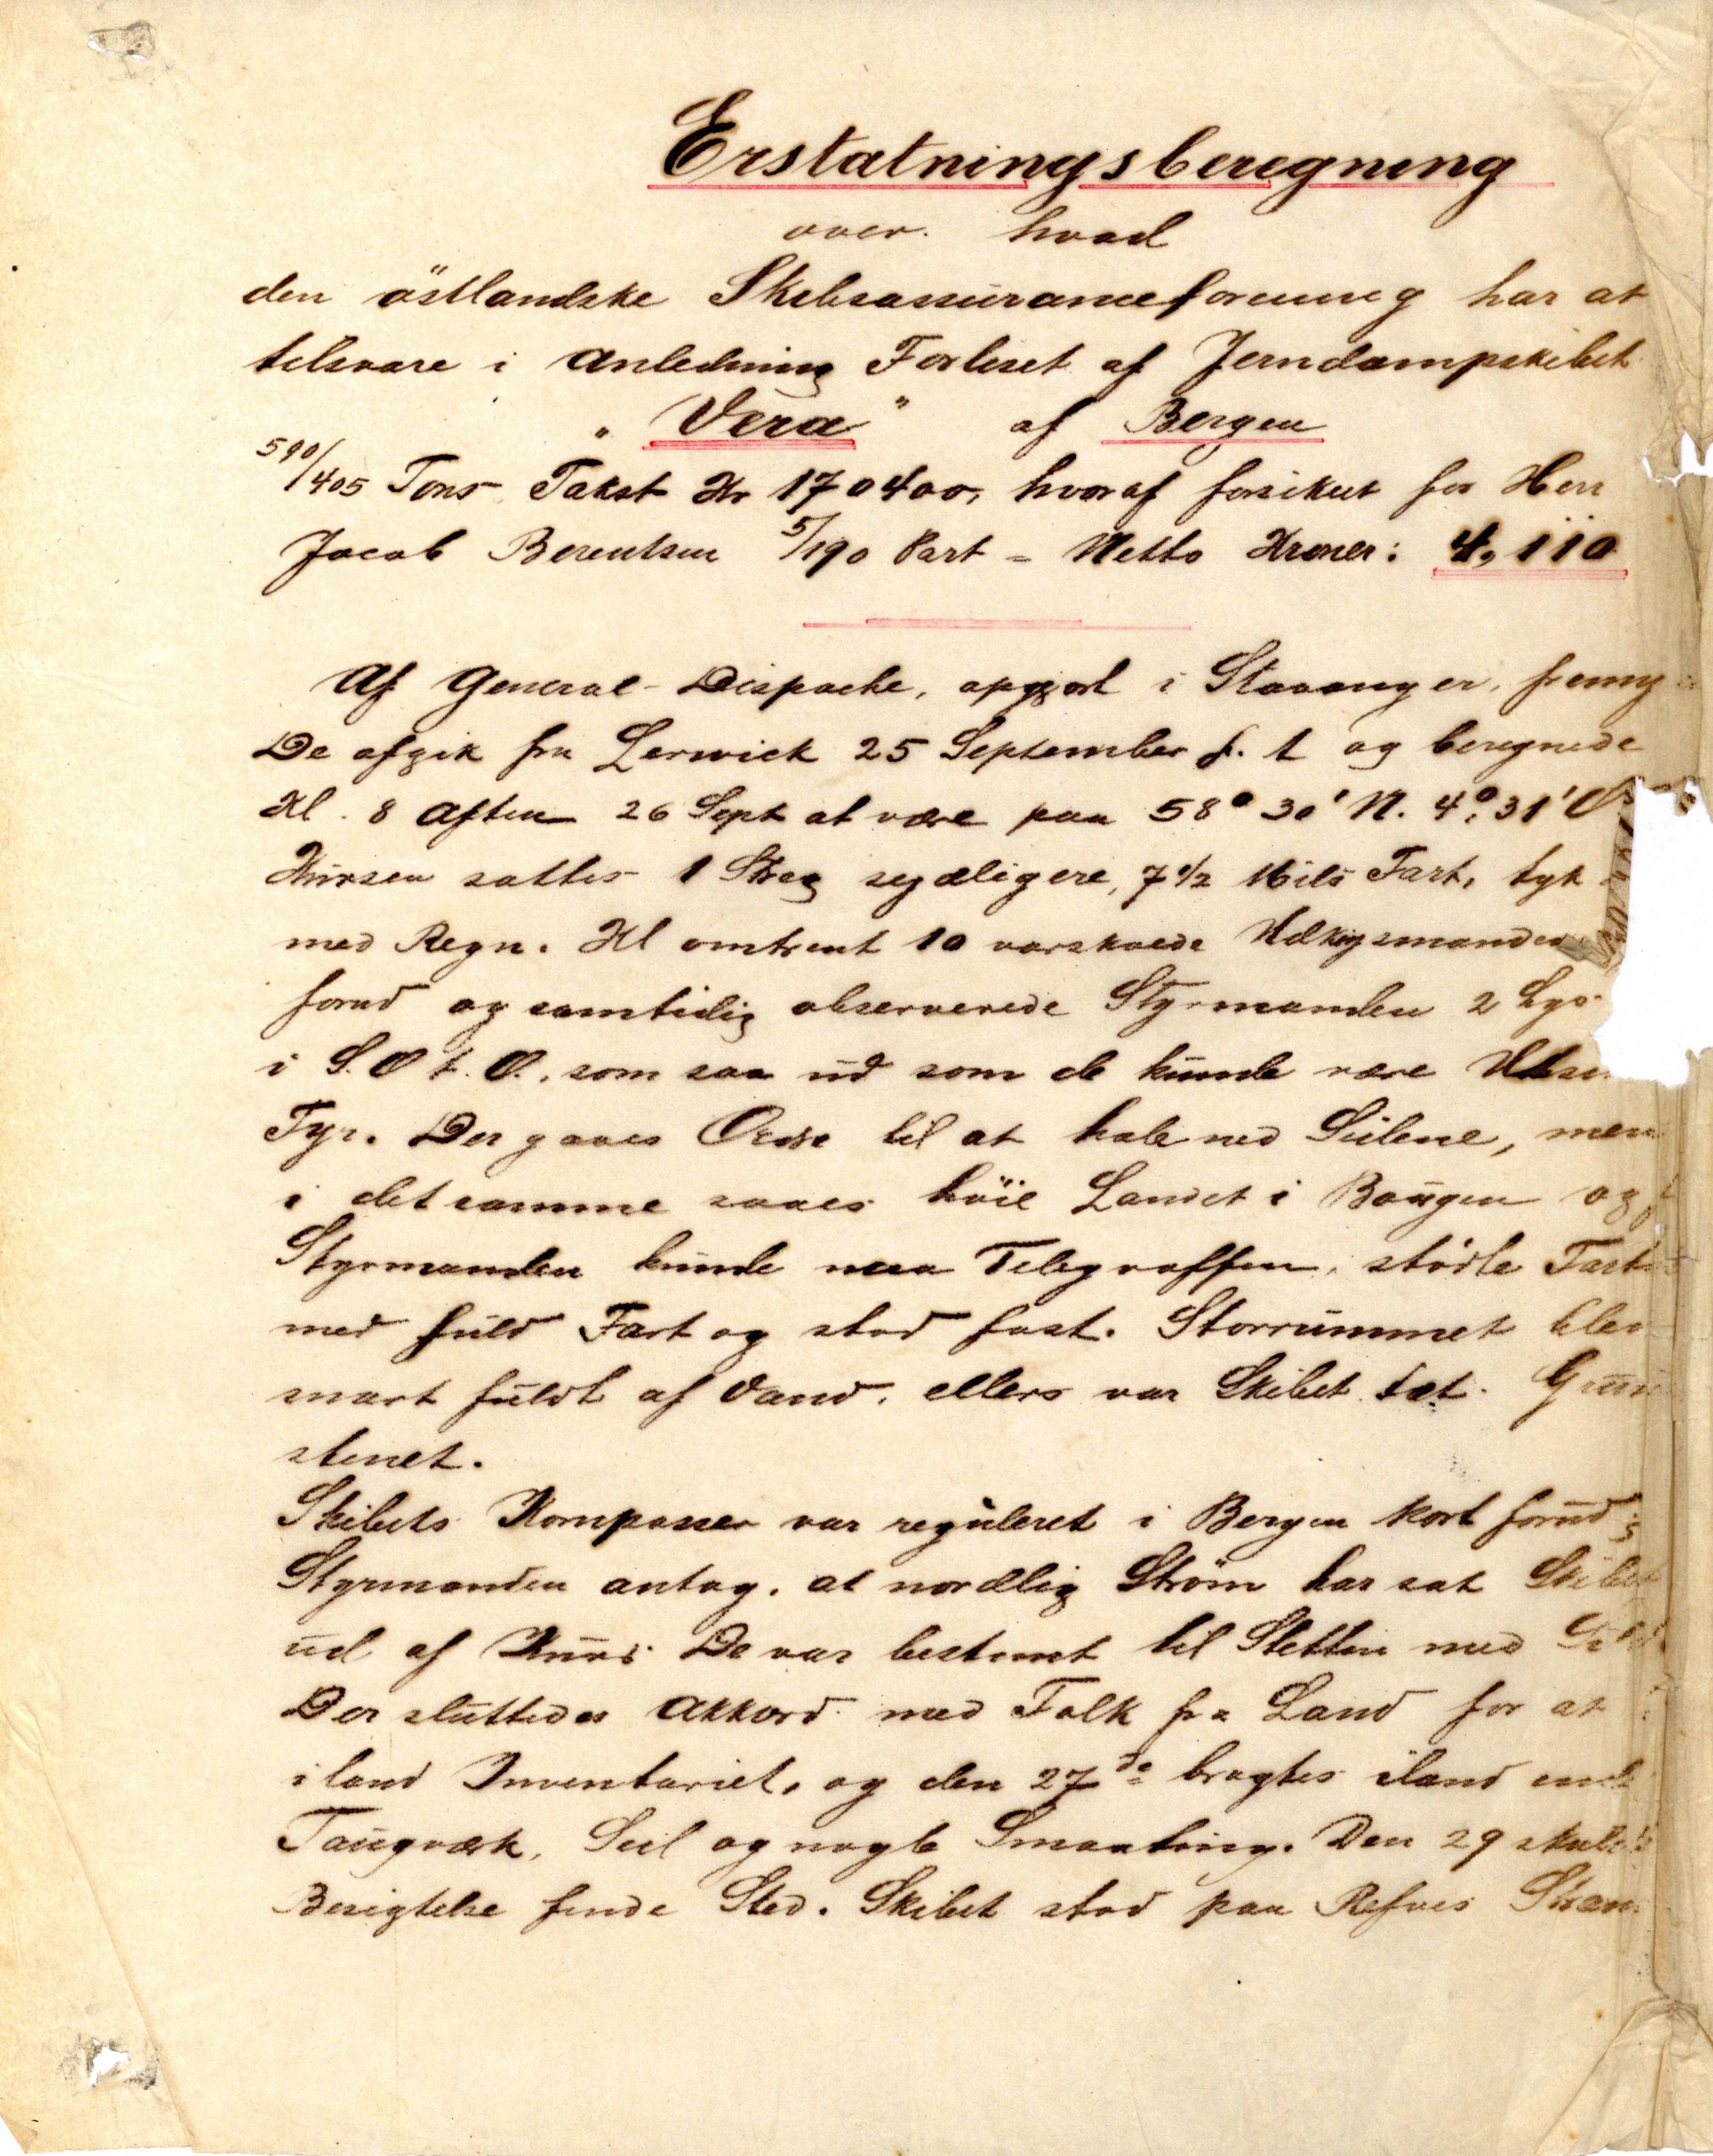 Erstatningsberegning
over hvad
den östlandske Skibsassuranceforening har at
tilsvare i Anledning Forliset af Jerndampskibet
"Vera" af Bergen
590/405 Tons Takst Kr 170400, hvoraf forsikret for Herr
Jacob Berentsen 5/190 Part = Netto Kroner: 4,110
Af General-Dispache, opgjort i Stavanger, fremg
De afgik fra Lerwick 25 September f. A og beregnede
Kl. 8 Aften 26 Sept at være paa 58° 30' N. 4° 31' O
Kursen sattes 1 Streg sydligere, 7 1/2 Mils Fart, tyk
med Regn. Kl omtrent 10 varskoede Udkigsmanden
forud og samtidig observerede Styrmanden 2 Lys
i S.O t. O. som saa ud som de kunde være
Fyr. Der gaves Ordre til at hale ned Seilene, men
i det samme saaes höie Landet i Bougen og f
Styrmanden kunde naa Telegraffen, stödte
med fuld Fart og stod fast. Storrummet blev
snart fuldt af Vand, ellers var Skibet tæt.
stenet.
Skibets Kompasser var reguleret i Bergen kort forud;
Styrmanden antog, at nordlig Ström har sat Skibet
ud af Kurs. De var bestemt til Stettin med Sild
Der sluttedes Akkord med Folk fra Land for at
iland Inventariet, og den 27de bragtes iland en del
Taugværk, Seil og nogle Smaating. Den 29 skulde
Besigtelse finde Sted. Skibet stod paa Refsnes